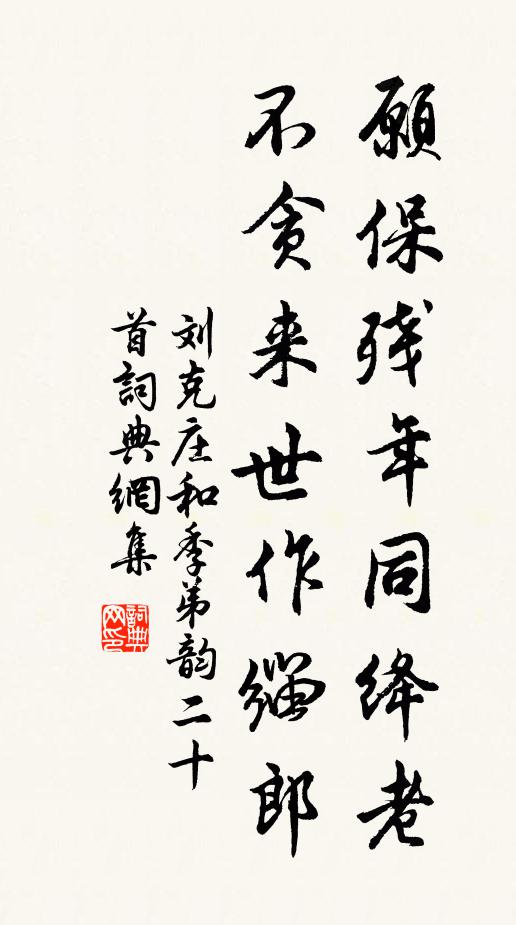 願保残年同絳老
不貪来世作緇郎
刘克庄和季弟韵二十
首詞典網集
詞典
网印